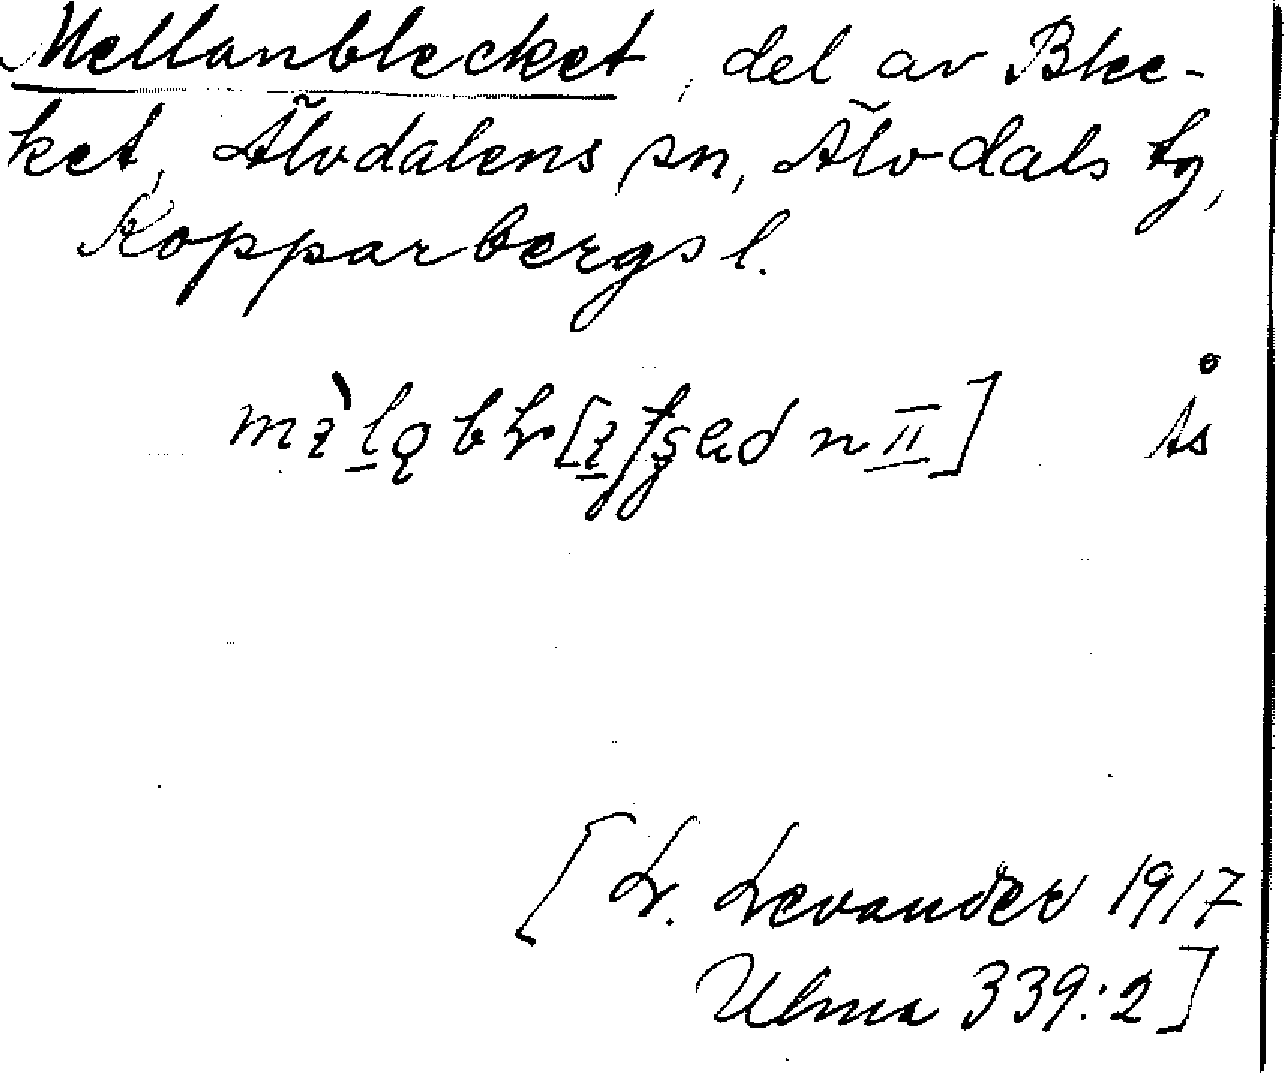 Mellanblecket, del av Blec-
ket, Älvdalens sn, Älvdals tg,
Kopparbergs l.
ås
[L. Levander 1917
Ulma 339:2]